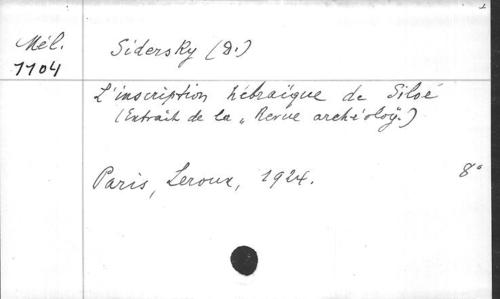 Mél.
1104
Sidersky (D.)
L'inscription hébraïque de Siloé
(Extrait de la „Revue archéolog.)
Paris, Leroux, 1924.
8°